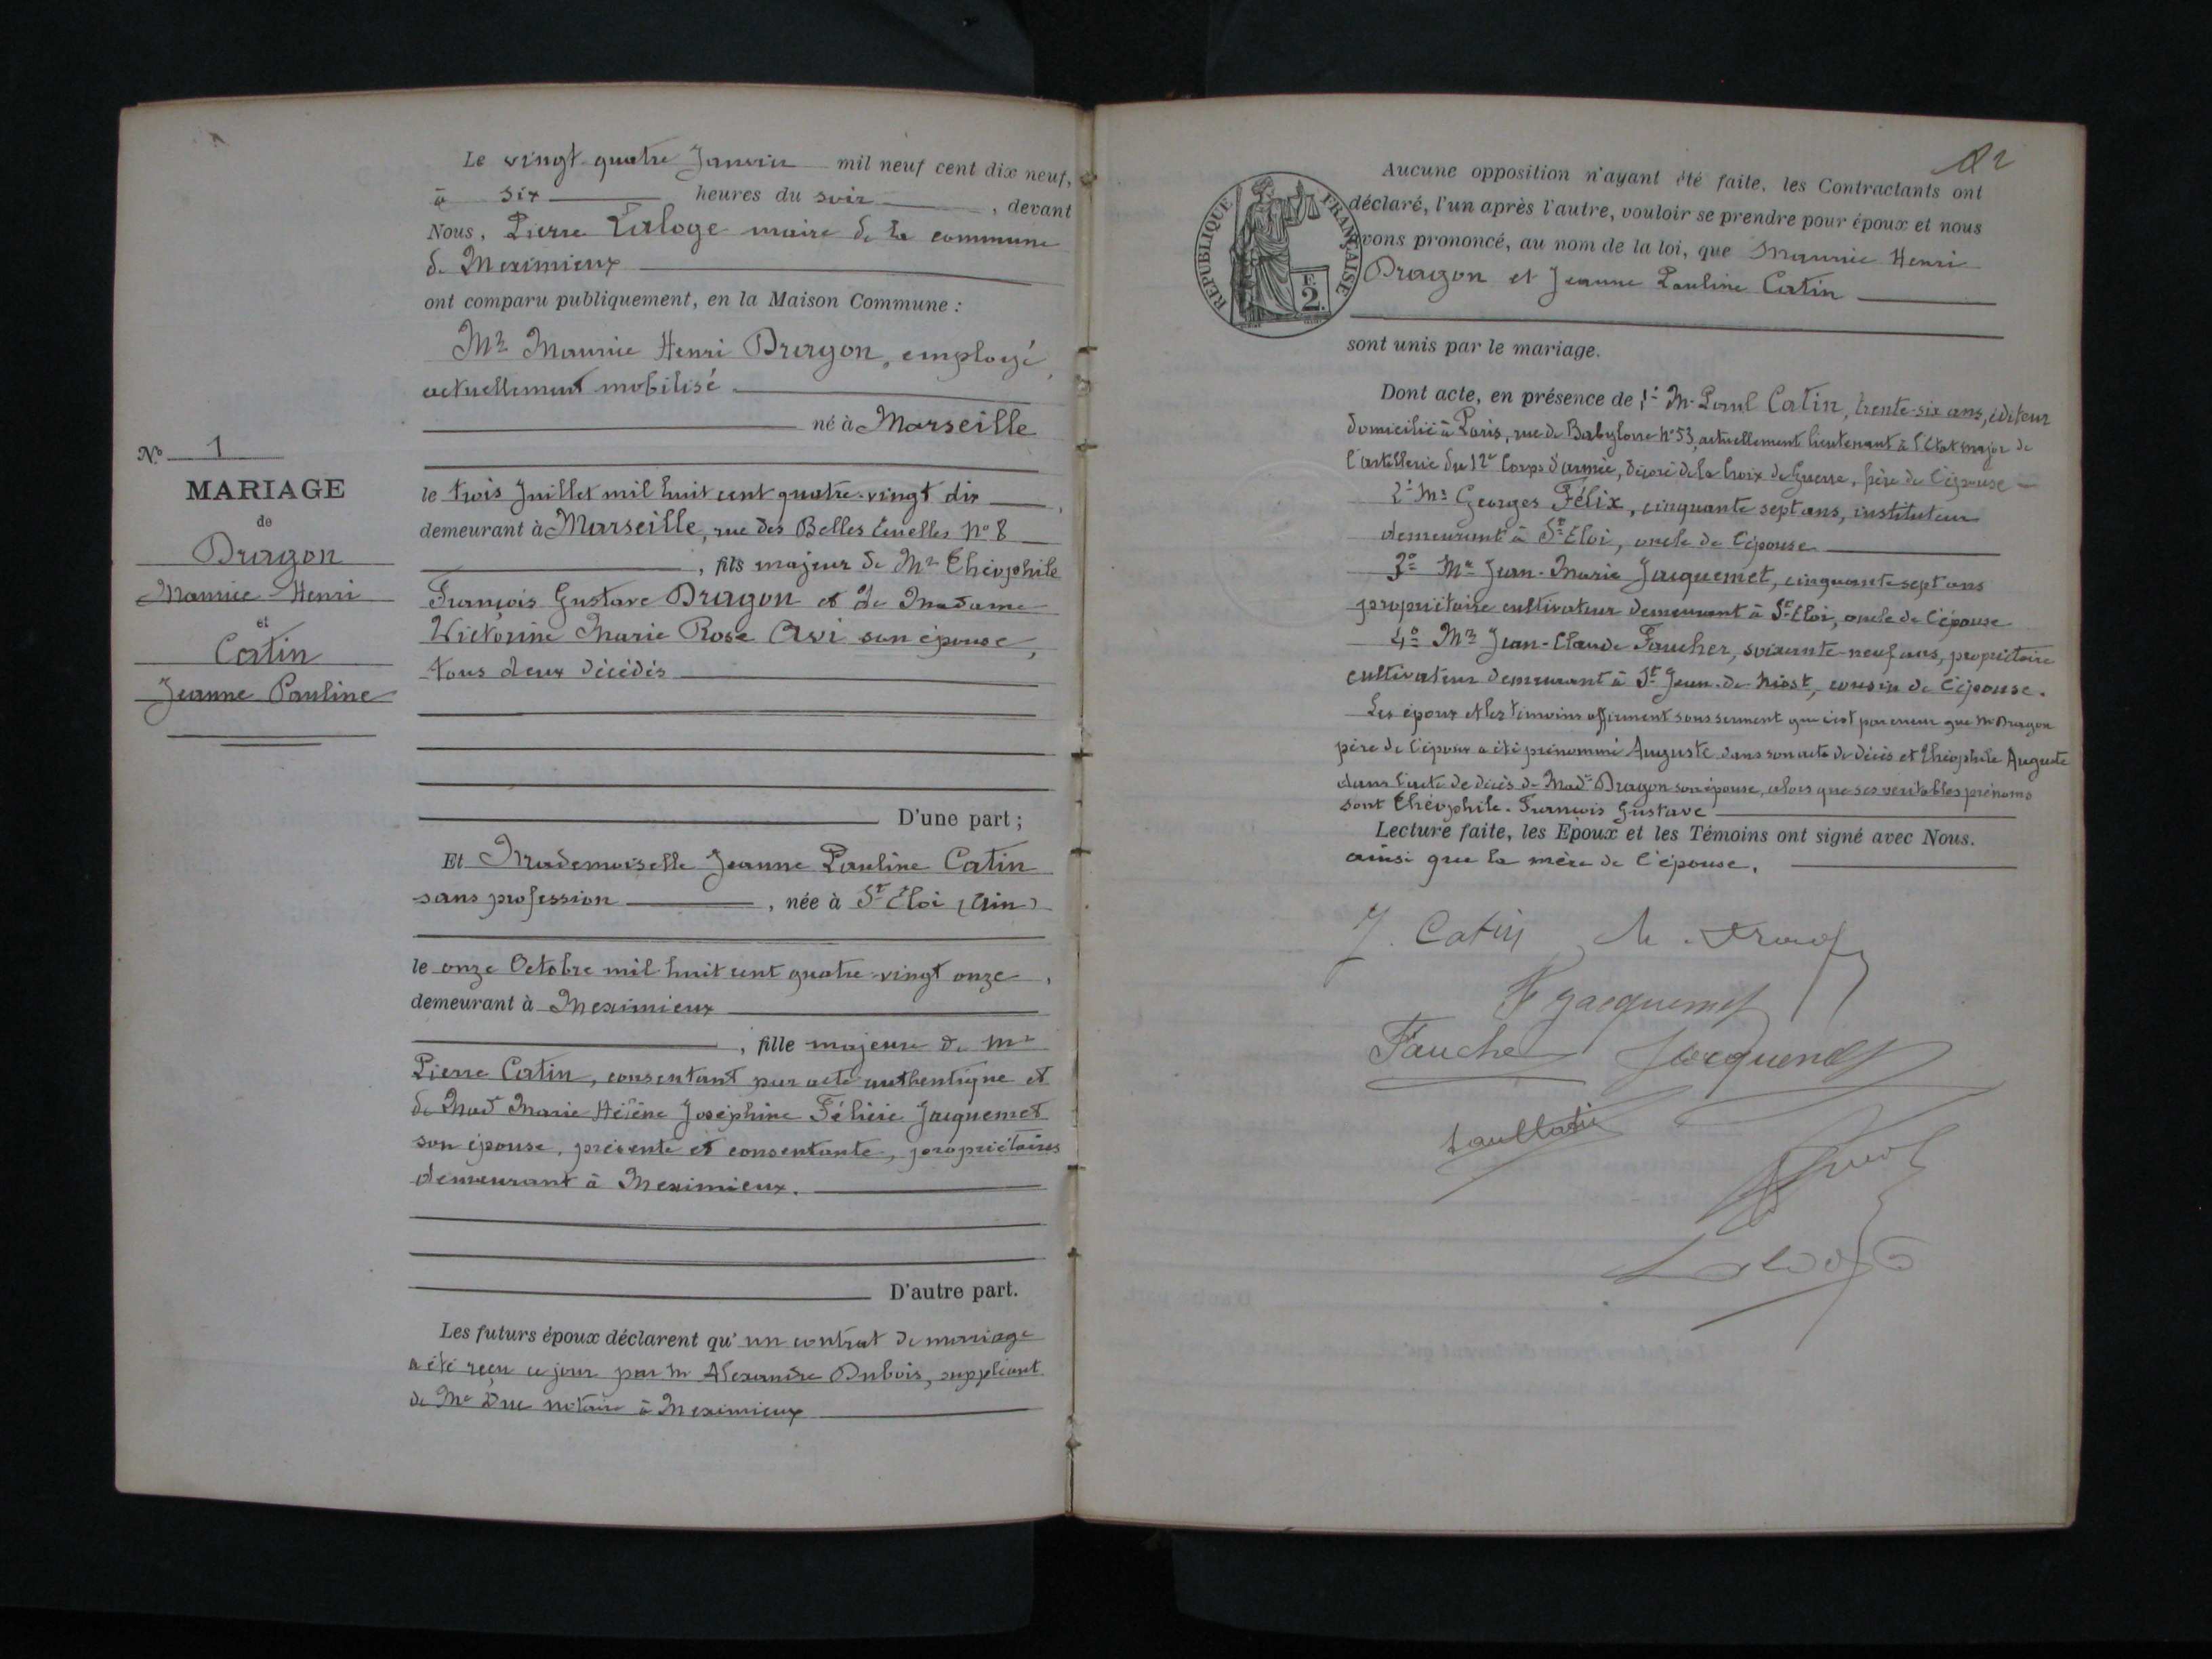 Le vingt-quatre Janvier mil neuf cent dix neuf,
à six heures du soir, devant
Nous, Pierre Laloge maire de la commune
de Meximieux
ont comparu publiquement, en la Maison Commune :
Mr Maurice Henri Dragon, employé,
actuellement mobilisé
né à Marseille
No 1
MARIAGE
de
Dragon
Maurice Henri
et
Catin
Jeanne Pauline
le trois Juillet mil huit cent quatre-vingt dix,
demeurant à Marseille, rue des Belles Ecuelles No 8
, fils majeur de Mr Théophile
François Gustave Dragon et de Madame
Victorine Marie Rose Avi son épouse,
tous deux décédés
D'une part ;
Et Mademoiselle Jeanne Pauline Catin
sans profession, née à St Eloi (Ain)
le onze Octobre mil huit cent quatre-vingt onze,
demeurant à Meximieux
, fille majeure de Mr
Pierre Catin, consentant par acte authentique et
de Made Marie Hélène Joséphine Félicie Jacquemet
son épouse, présente et consentante, propriétaires
demeurant à Meximieux.
D'autre part.
Les futurs époux déclarent qu'un contrat de mariage
a été reçu ce jour par Me Alexandre Dubois, suppléant
de Me Duc notaire à Meximieux
82
REPUBLIQUE FRANÇAISE
F.
2.
Aucune opposition n'ayant été faite, les Contractants ont
déclaré, l'un après l'autre, vouloir se prendre pour époux et nous
avons prononcé, au nom de la loi, que Maurice Henri
Dragon et Jeanne Pauline Catin
sont unis par le mariage.
Dont acte, en présence de 1° Mr Paul Catin, trente-six ans, éditeur
domicilié à Paris, rue de Babylone No 53, actuellement lieutenant à l'Etat major de
l'artillerie du 12e Corps d'armée, décoré de la Croix de Guerre, frère de l'épouse
2° Mr Georges Félix, cinquante sept ans, instituteur
demeurant à St Eloi, oncle de l'épouse
3° Mr Jean-Marie Jacquemet, cinquante-sept ans
propriétaire cultivateur demeurant à St Eloi, oncle de l'épouse
4° Mr Jean-Claude Faucher, soixante-neuf ans, propriétaire
cultivateur demeurant à St Jean-de Niost, cousin de l'épouse.
Les époux et les témoins affirment sous serment que c'est par erreur que Mr Dragon
père de l'époux a été prénommé Auguste dans son acte de décès et Théophile Auguste
dans l'acte de décès de Made Dragon son épouse, alors que ses véritables prénoms
sont Théophile-François Gustave
Lecture faite, les Epoux et les Témoins ont signé avec Nous.
ainsi que la mère de l'épouse.
J. Catin M.
F Jacquemet
Faucher Jacquemet
Paul Catin